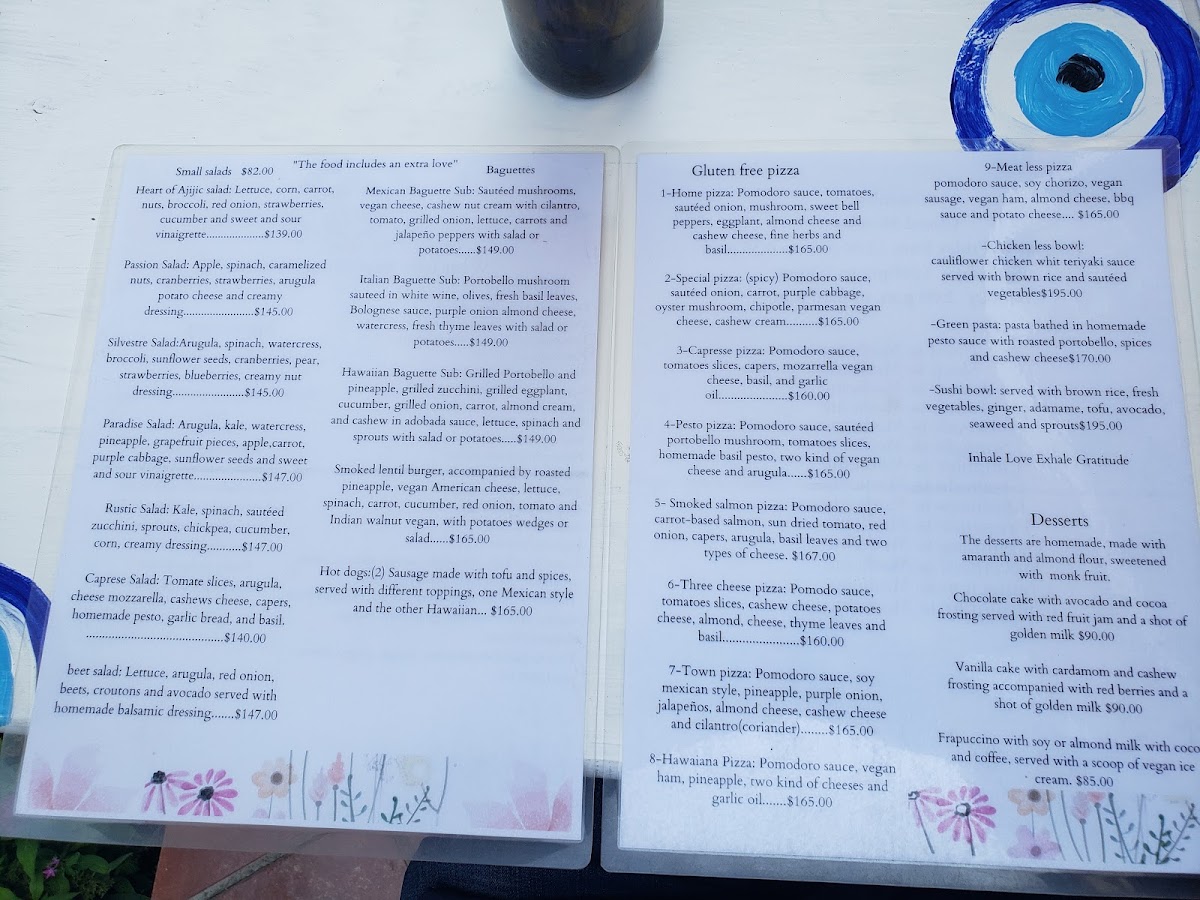 "The food includes an extra love"
Small salads $82.00
Heart of Ajijic salad: Lettuce, corn, carrot,
nuts, broccoli, red onion, strawberries,
cucumber and sweet and sour
vinaigrette....................$139.00
Passion Salad: Apple, spinach, caramelized
nuts, cranberries, strawberries, arugula
potato cheese and creamy
dressing.............................$145.00
Silvestre Salad:Arugula, spinach, watercress,
broccoli, sunflower seeds, cranberries, pear,
strawberries, blueberries, creamy nut
dressing.........................$145.00
Paradise Salad: Arugula, kale, watercress,
pineapple, grapefruit pieces, apple,carrot,
purple cabbage, sunflower seeds and sweet
and sour vinaigrette.......................$147.00
Rustic Salad: Kale, spinach, sautéed
zucchini, sprouts, chickpea, cucumber,
corn, creamy dressing...........$147.00
Caprese Salad: Tomate slices, arugula,
cheese mozzarella, cashews cheese, capers,
homemade pesto, garlic bread, and basil.
...........................................$140.00
beet salad: Lettuce, arugula, red onion,
beets, croutons and avocado served with
homemade balsamic dressing.......$147.00
Baguettes
Mexican Baguette Sub: Sautéed mushrooms,
vegan cheese, cashew nut cream with cilantro,
tomato, grilled onion, lettuce, carrots and
jalapeño peppers with salad or
potatoes......$149.00
Italian Baguette Sub: Portobello mushroom
sauteed in white wine, olives, fresh basil leaves,
Bolognese sauce, purple onion almond cheese,
watercress, fresh thyme leaves with salad or
potatoes.....$149.00
Hawaiian Baguette Sub: Grilled Portobello and
pineapple, grilled zucchini, grilled eggplant,
cucumber, grilled onion, carrot, almond cream,
and cashew in adobada sauce, lettuce, spinach and
sprouts with salad or potatoes.....$149.00
Smoked lentil burger, accompanied by roasted
pineapple, vegan American cheese, lettuce,
spinach, carrot, cucumber, red onion, tomato and
Indian walnut vegan, with potatoes wedges or
salad......$165.00
Hot dogs:(2) Sausage made with tofu and spices,
served with different toppings, one Mexican style
and the other Hawaiian... $165.00
Gluten free pizza
1-Home pizza: Pomodoro sauce, tomatoes,
sautéed onion, mushroom, sweet bell
peppers, eggplant, almond cheese and
cashew cheese, fine herbs and
basil......................$165.00
2-Special pizza: (spicy) Pomodoro sauce,
sautéed onion, carrot, purple cabbage,
oyster mushroom, chipotle, parmesan vegan
cheese, cashew cream..........$165.00
3-Capresse pizza: Pomodoro sauce,
tomatoes slices, capers, mozarrella vegan
cheese, basil, and garlic
oil........................$160.00
4-Pesto pizza: Pomodoro sauce, sautéed
portobello mushroom, tomatoes slices,
homemade basil pesto, two kind of vegan
cheese and arugula......$165.00
5- Smoked salmon pizza: Pomodoro sauce,
carrot-based salmon, sun dried tomato, red
onion, capers, arugula, basil leaves and two
types of cheese. $167.00
6-Three cheese pizza: Pomodo sauce,
tomatoes slices, cashew cheese, potatoes
cheese, almond, cheese, thyme leaves and
basil......................$160.00
7-Town pizza: Pomodoro sauce, soy
mexican style, pineapple, purple onion,
jalapeños, almond cheese, cashew cheese
and cilantro(coriander)........$165.00
8-Hawaiana Pizza: Pomodoro sauce, vegan
ham, pineapple, two kind of cheeses and
garlic oil.......$165.00
9-Meat less pizza
pomodoro sauce, soy chorizo, vegan
sausage, vegan ham, almond cheese, bbq
sauce and potato cheese.... $165.00
-Chicken less bowl:
cauliflower chicken whit teriyaki sauce
served with brown rice and sautéed
vegetables$195.00
-Green pasta: pasta bathed in homemade
pesto sauce with roasted portobello, spices
and cashew cheese$170.00
-Sushi bowl: served with brown rice, fresh
vegetables, ginger, adamame, tofu, avocado,
seaweed and sprouts$195.00
Inhale Love Exhale Gratitude
Desserts
The desserts are homemade, made with
amaranth and almond flour, sweetened
with monk fruit.
Chocolate cake with avocado and cocoa
frosting served with red fruit jam and a shot of
golden milk $90.00
Vanilla cake with cardamom and cashew
frosting accompanied with red berries and a
shot of golden milk $90.00
Frapuccino with soy or almond milk with coco
and coffee, served with a scoop of vegan ice
cream. $85.00